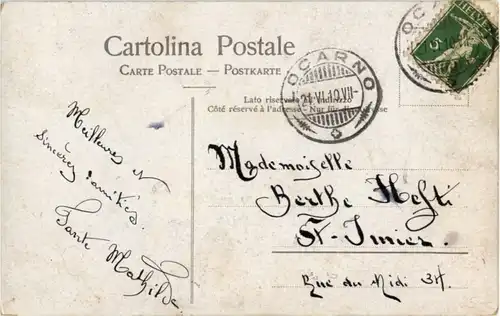 Cartolina Postale
CARTE POSTALE — POSTKARTE
Lato riservato all'indirizzo
Côté réservé à l'adresse - Nur für die Adresse
LOCARNO
21.VI.10.VII-
OCAR
HELVE
5
Meilleures et
sincères amitiés.
Tante Mathilde
Mademoiselle
Berthe Hefti
St-Imier.
Rue du Midi 34